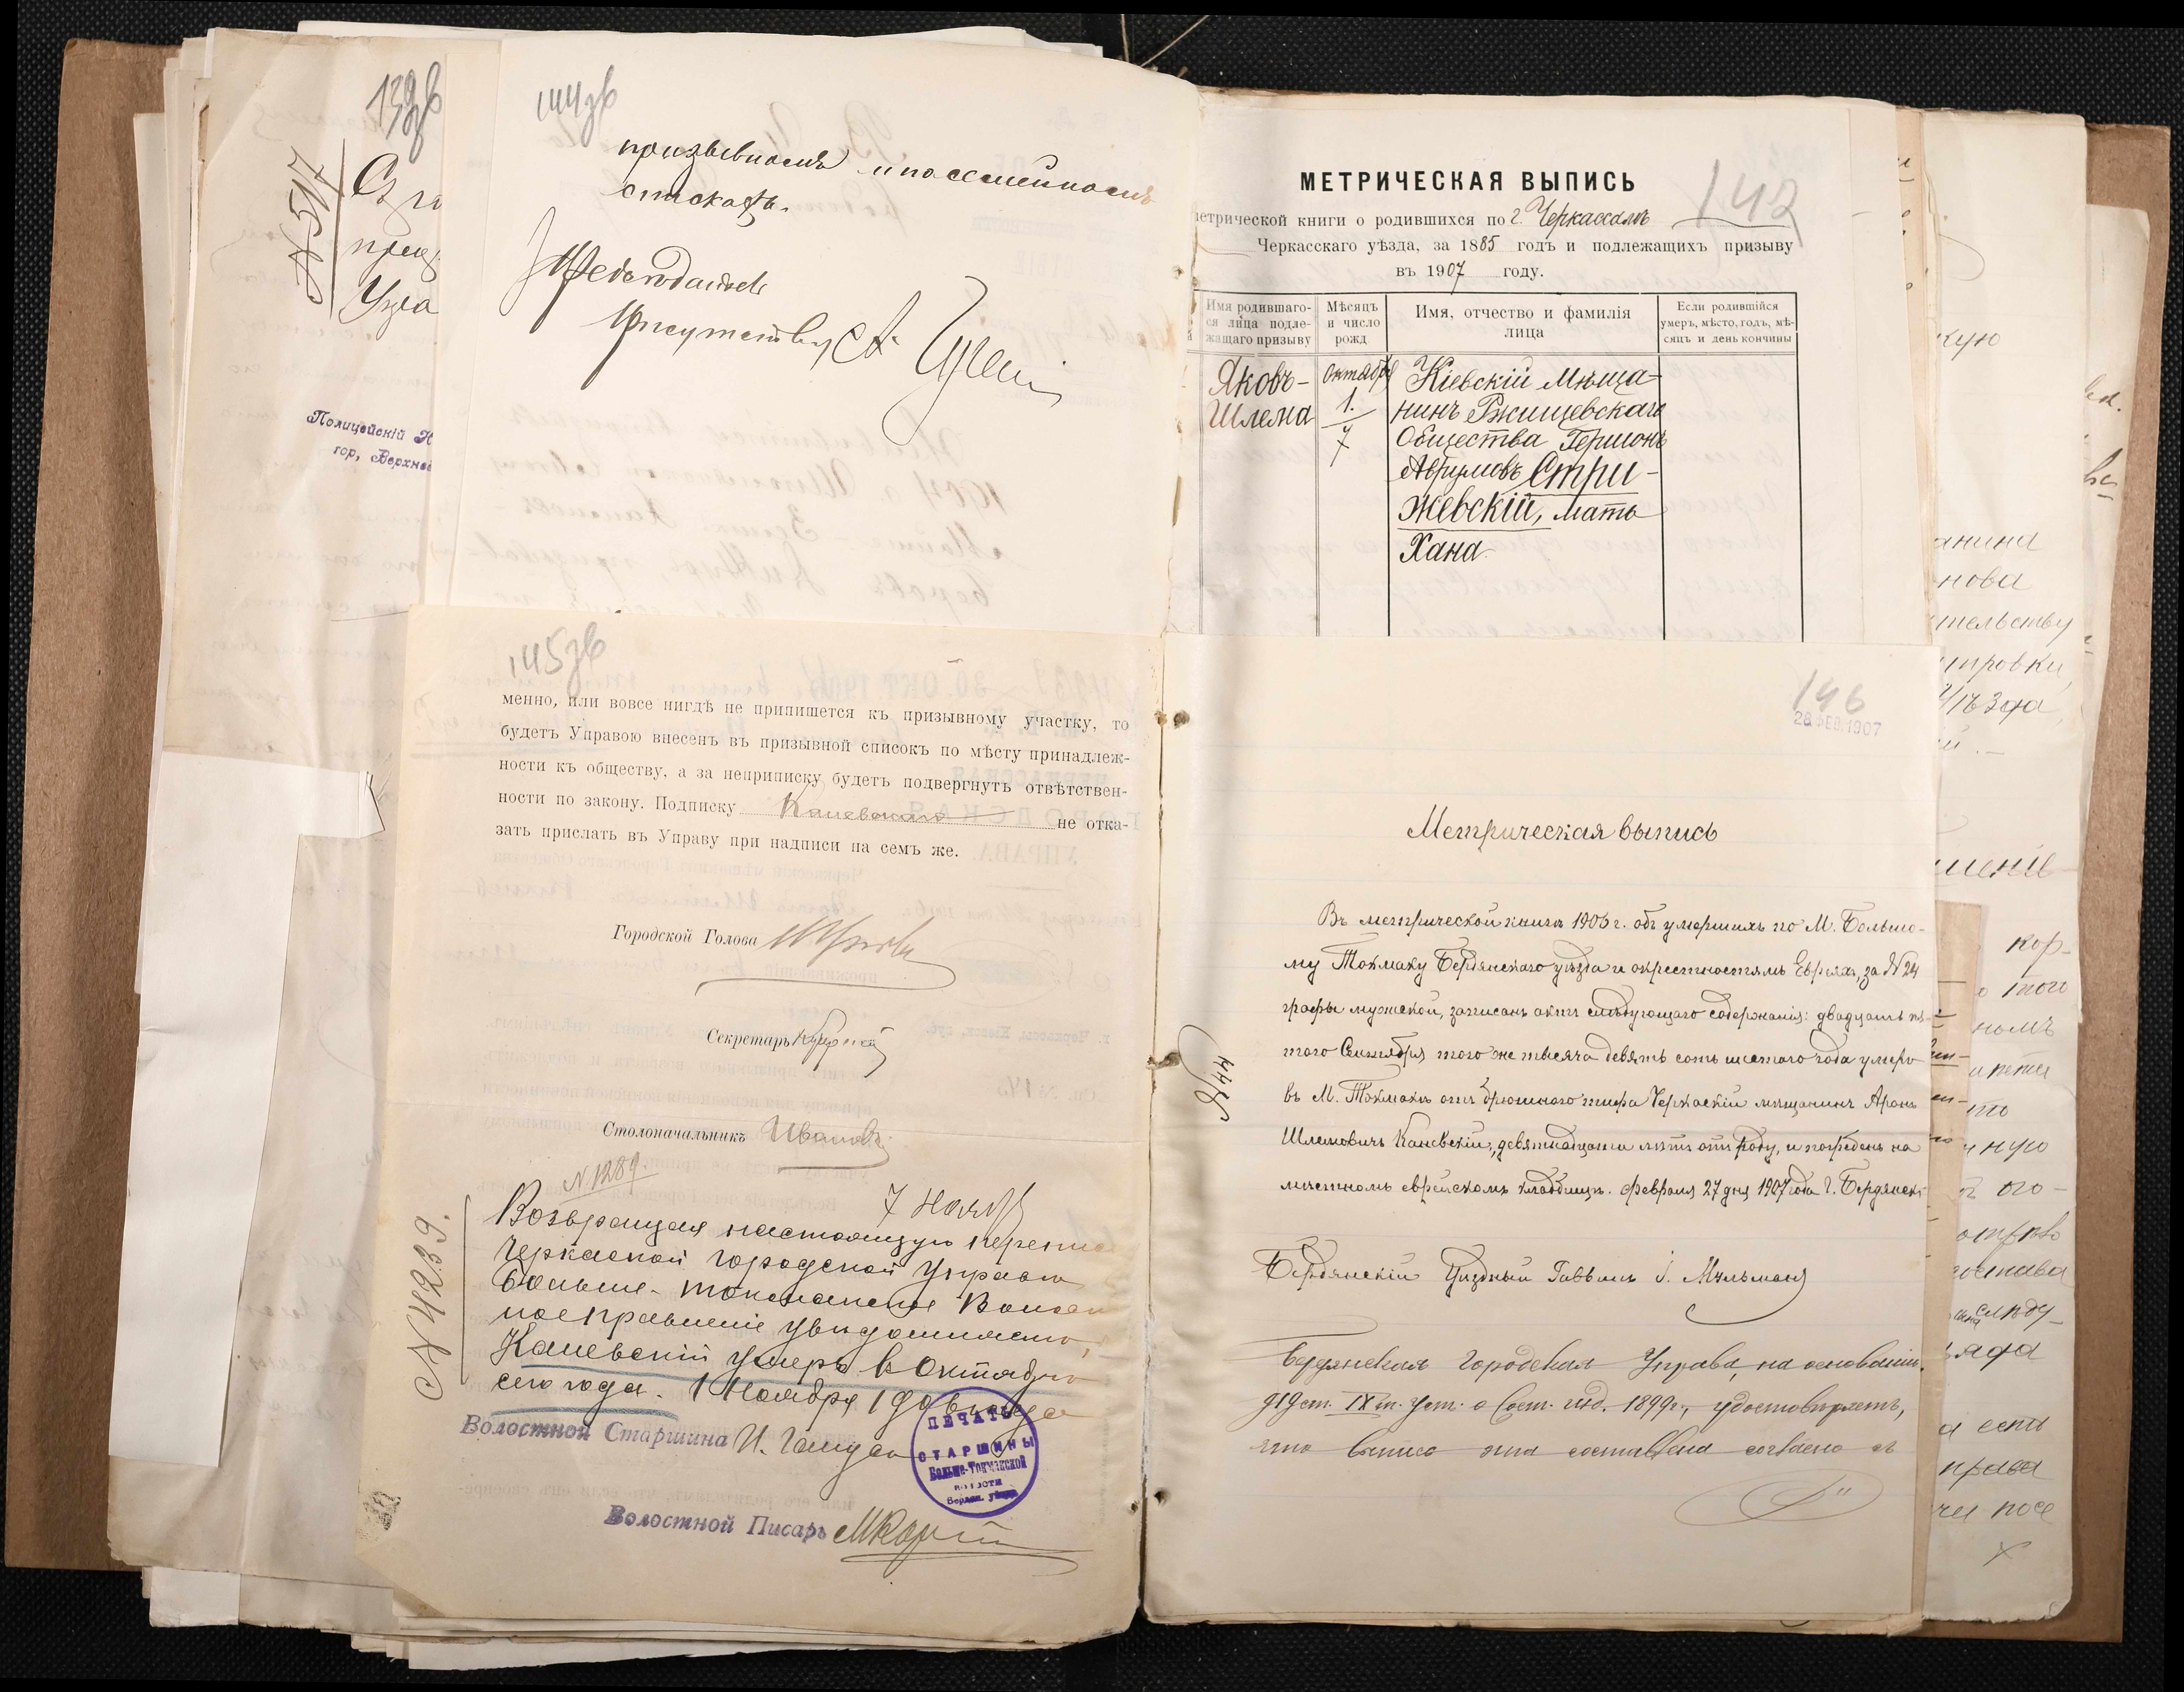 139об
№ 517
Полицейскій Н
гор. Верхне
144об
призывномъ и посемейномъ
спискахъ.
Председатель
Присутствія
МЕТРИЧЕСКАЯ ВЫПИСЬ
142
метрической книги о родившихся по г. Черкассамъ
Черкасскаго уѣзда, за 1885 годъ и подлежащихъ призыву
въ 1907 году.
Имя родившаго-
ся лица подле-
жащаго призыву
Мѣсяцъ
и число
рожд.
Имя, отчество и фамилія
лица
Если родившійся
умеръ, мѣсто, годъ, мѣ-
сяцъ и день кончины
Яковъ-
Шлема
Октября
1.
7
Кіевскій мѣща-
нинъ Ржищевскаго
Общества Гершонъ
Аврумовъ Стри-
жевскій, мать
Хана.
145об
менно, или вовсе нигдѣ не припишется къ призывному участку, то
будетъ Управою внесенъ въ призывной списокъ по мѣсту принадлеж-
ности къ обществу, а за неприписку будетъ подвергнутъ отвѣтствен-
ности по закону. Подписку Каневскаго не отка-
зать прислать въ Управу при надписи на семъ же.
Городской Голова
Секретарь
Столоначальникъ Ивановъ
N. 1289.
7 Нояб
№ 4239.
Возвращая настоящую перепис
Черкаской городской Управѣ
Больше-Токмакское Волост
ное правленіе увѣдомляетъ,
Каневскій умеръ въ Октябрѣ
сего года. 1 Ноября 1906 года
Волостной Старшина
ПЕЧАТЬ
СТАРШИНЫ
Больше-Токмакской
волости
Бердян. уѣзда
Волостной Писарь
146
28 ФЕВ. 1907
Метрическая выпись
№ 444
Въ метрической книгѣ 1906 г. объ умершихъ по М. Большо-
му Токмаку Бердянскаго уѣзда и окрестностямъ Евреяхъ, за № 24
графы мужской, записанъ актъ слѣдующаго содержанія: двадцать пя-
таго Сентября того же тысяча девять сотъ шестого года умеръ
въ М. Токмакѣ отъ брюшного тифа Черкаскій мѣщанинъ Аронъ
Шлемовичъ Каневскій, девятнадцати лѣтъ отъ роду, и погребенъ на
мѣстномъ еврейскомъ кладбищѣ. Февраля 27 дня 1907 года г. Бердянскъ
Бердянскій Уѣздный Раввинъ І. Мильманъ
Бердянская Городская Управа, на основаніи
919 ст. IX т. Уст. о Сост. изд. 1899 г., удостовѣряетъ,
что выпись эта составлена согласно съ
анина
нова
тельству
тровки,
уѣзда
кор-
того
номъ
ную
слѣду-
права